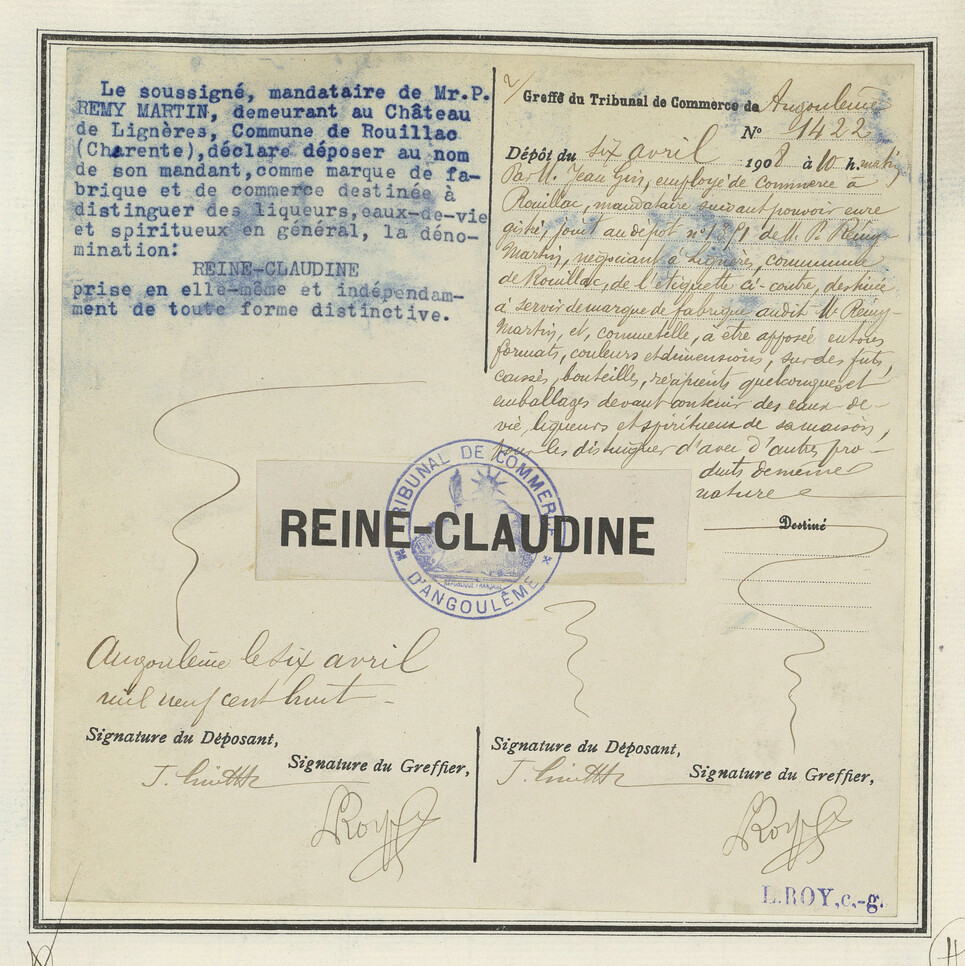 Le soussigné, mandataire de Mr.P.
REMY MARTIN, demeurant au Château
de Lignères, Commune de Rouillac
(Charente),déclare déposer au nom
de son mandant,comme marque de fa-
brique et de commerce destinée à
distinguer des liqueurs,eaux-de-vie
et spiritueux en général, la déno-
mination:
REINE-CLAUDINE
prise en elle-même et indépendam-
ment de toute forme distinctive.
Greffe du Tribunal de Commerce de Angoulême
No 1422
Dépôt du six avril 1908 à 10 h. matin
Par M. Jean employé de commerce à
Rouillac, mandataire suivant pouvoir enre
gistré, joint au dépôt no de M. P. Remy-
Martin, négociant à Lignères, commune
de Rouillac, de l'étiquette ci-contre, destinée
à servir de marque de fabrique audit M. Rémy-
Martin, et, comme telle, à être apposée en tous
formats, couleurs et dimensions, sur des fûts,
caisses, bouteilles, récipients quelconques et
emballages devant contenir des eaux-de-
vie, liqueurs et spiritueux de sa maison,
pour les distinguer d'avec d'autres pro-
duits de même
nature
TRIBUNAL DE COMMERCE
REPUBLIQUE FRANÇAISE
D'ANGOULÊME
REINE-CLAUDINE
Destiné
Angoulême le six avril
mil neuf cent huit
Signature du Déposant,
Signature du Greffier,
Signature du Déposant,
Signature du Greffier,
L.ROY,c.-g.